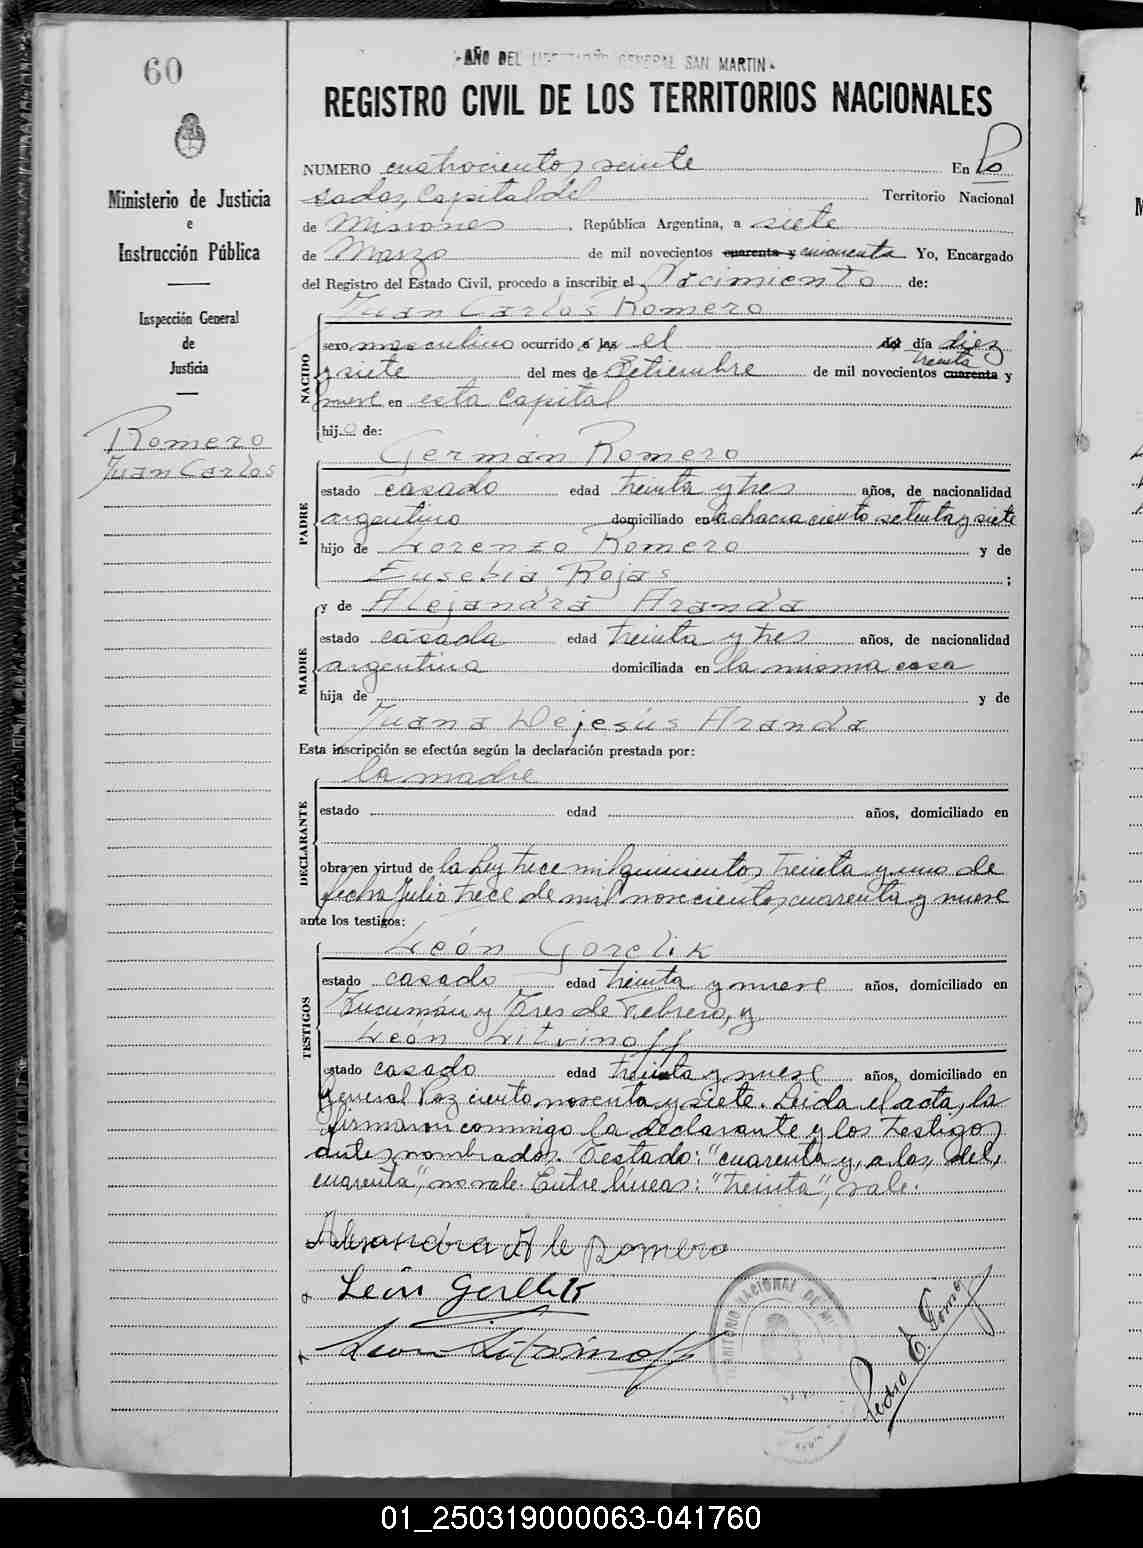 60
AÑO DEL LIBERTADOR GENERAL SAN MARTIN
REGISTRO CIVIL DE LOS TERRITORIOS NACIONALES
Ministerio de Justicia
e
Instrucción Pública
Inspección General
de
Justicia
Romero
Juan Carlos
NUMERO cuatrocientos veinte En Po
sadas, Capital del Territorio Nacional
de Misiones República Argentina, a siete
de Marzo de mil novecientos cuarenta y cincuenta Yo, Encargado
del Registro del Estado Civil, procedo a inscribir el Nacimiento de:
Juan Carlos Romero
NACIDO
sexo masculino ocurrido a las el del día diez
treinta
y siete del mes de Setiembre de mil novecientos cuarenta y
nueve en esta Capital
hijo de:
Germán Romero
PADRE
estado casado edad treinta y tres años, de nacionalidad
argentino domiciliado en la chacra ciento setenta y siete
hijo de Lorenzo Romero y de
Eusebia Rojas ;
y de Alejandra Aranda
MADRE
estado casada edad treinta y tres años, de nacionalidad
argentina domiciliada en la misma casa
hija de y de
Juana Dejesús Aranda
Esta inscripción se efectúa según la declaración prestada por:
la madre
DECLARANTE
estado edad años, domiciliado en
obra en virtud de la Ley trece mil quinientos treinta y uno de
fecha Julio trece de mil novecientos cuarenta y nueve
ante los testigos:
León Gorelik
TESTIGOS
estado casado edad treinta y nueve años, domiciliado en
Tucumán y Tres de Febrero, y
León Litvinoff
estado casado edad treinta y nueve años, domiciliado en
General Paz ciento noventa y siete. Leida el acta, la
firmaron conmigo la declarante y los testigos
antes nombrados. Testado: "cuarenta y, a las, del,
cuarenta", no vale. Entre lineas: "treinta", vale.
Alejandra A de Romero
León Gorelik
León Litvinoff
TERRITORIO NACIONAL DE MI
Pedro E. Gom
01_250319000063-041760